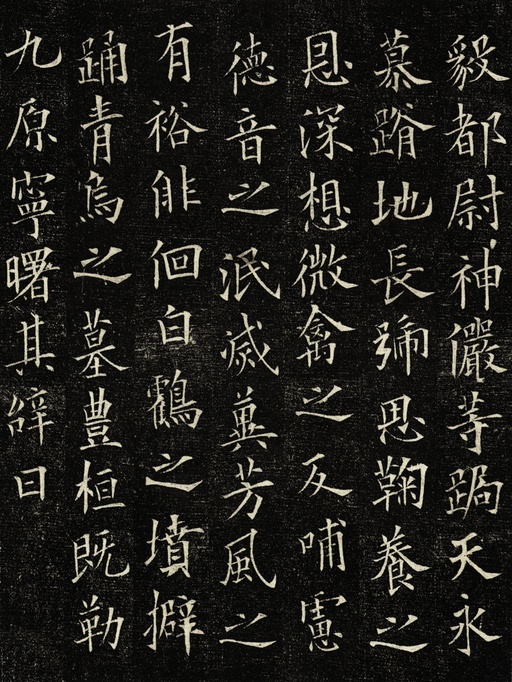 毅都尉神儼等跼天永
慕蹐地長號思鞠養之
恩深想微禽之反哺慮
德音之泯滅冀芳風之
有裕俳徊白鶴之墳擗
踊青烏之墓豊桓既勒
九原寧曙其辞曰